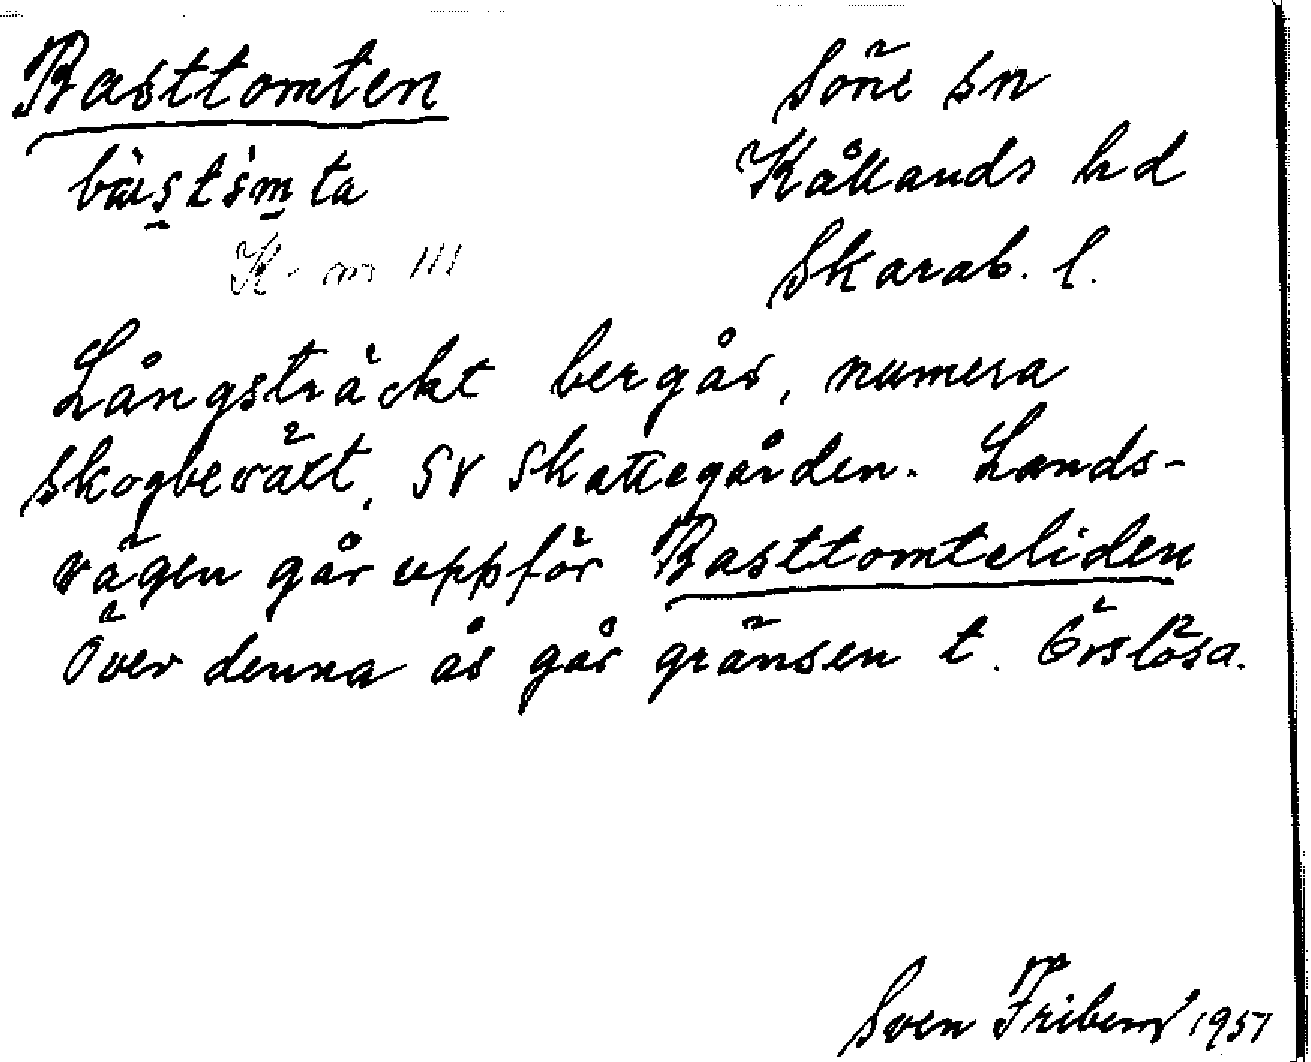 Basttomten
Söne sn
Kållands hd
Skarab. l.
Långsträckt bergås, numera
skogbeväxt, SV Skattegården. Lands-
vägen går uppför Basttomteliden
Över denna ås går gränsen t. Örslösa.
Sven Friberg 1951